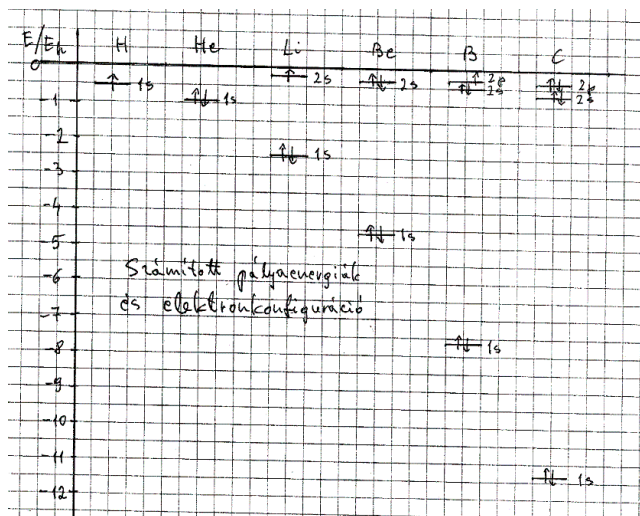 E/Eh H He Li Be B C
0
↑ 1s
↑↓ 1s
↑ 2s
↑↓ 2s
↑ 2p
↑↓ 2s
↑↓ 2p
↑↓ 2s
-1
-2
↑↓ 1s
-3
-4
↑↓ 1s
-5
Számított pályaenergiák
-6
és elektronkonfiguráció
-7
↑↓ 1s
-8
-9
-10
-11
↑↓ 1s
-12